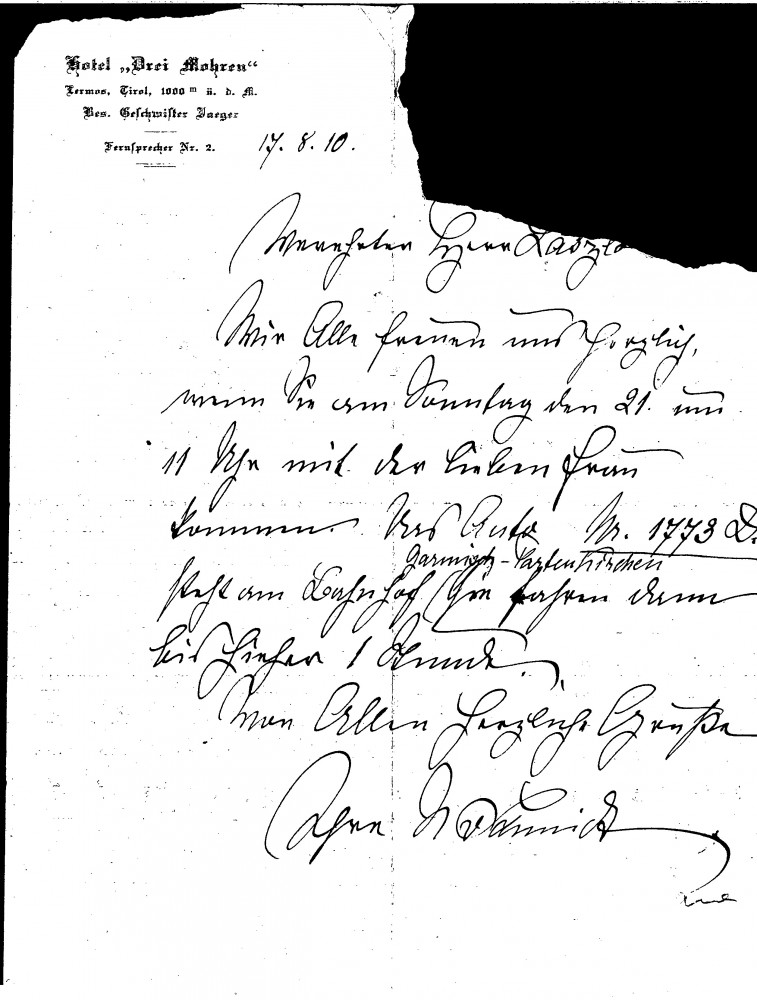 Hotel „Drei Mohren“
Lermos, Tirol, 1000 m ü. d. M.
Bes. Geschwister Jaeger
Fernsprecher Nr. 2.
17. 8. 10.
Verehrter Herr Laszlo
Wir Alle freuen uns herzlich,
wenn Sie am Sonntag den 21. um
11 Uhr mit der lieben Frau
kommen. Das Auto Nr. 1773 D.
Garmisch-Partenkirchen
steht am Bahnhof Sie fahren dann
bis hieher 1 Stunde.
Von Allen herzliche Grüße
Ihre